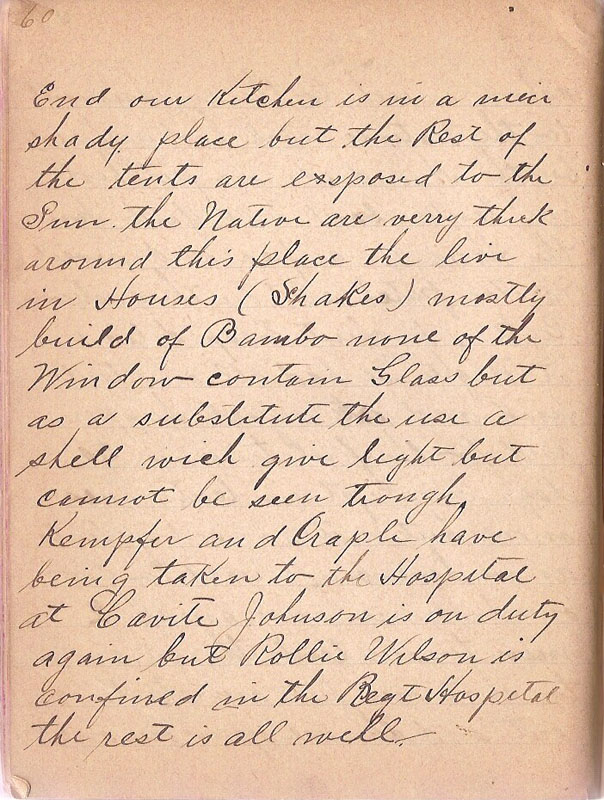 60
End our Kitchen is in a nice
shady place but the Rest of
the tents are exsposed to the
Sun. the Native are verry thick
around this place the live
in Houses (Shakes) mostly
build of Bambo none of the
Window contain Glass but
as a substitute the use a
shell wich give light but
cannot be seen trough
Kempfer and Craple have
being taken to the Hospital
at Cavite Johnson is on duty
again but Rollie Wilson is
confined in the Regt Hospital
the rest is all well.